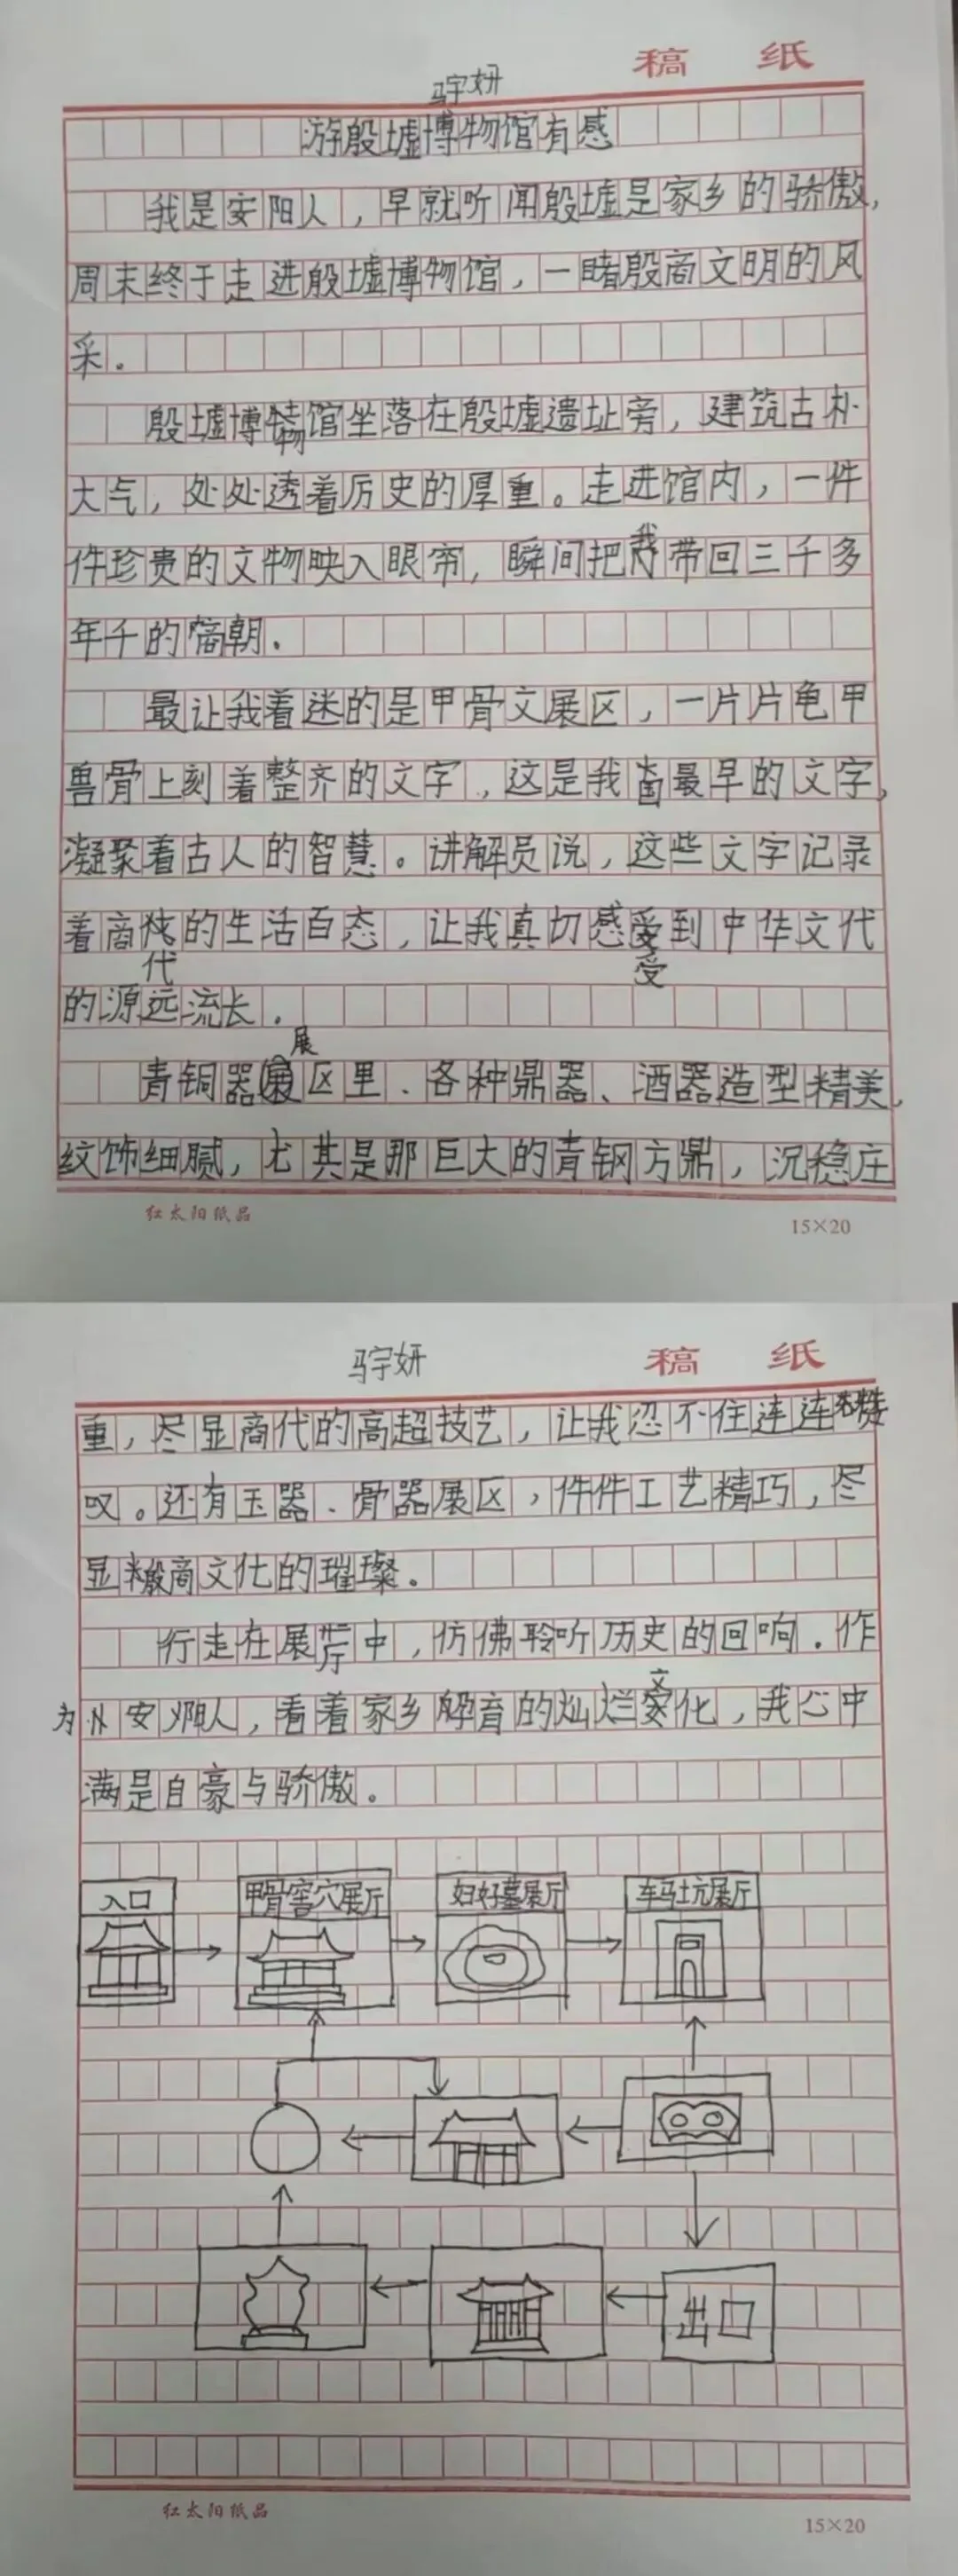 稿 纸
马宇妍
游殷墟博物馆有感
我是安阳人，早就听闻殷墟是家乡的骄傲，
周末终于走进殷墟博物馆，一睹殷商文明的风
采。
殷墟博物馆坐落在殷墟遗址旁，建筑古朴
大气，处处透着历史的厚重。走进馆内，一件
件珍贵的文物映入眼帘，瞬间把我带回三千多
年千的商朝.
最让我着迷的是甲骨文展区，一片片龟甲
兽骨上刻着整齐的文字，这是我国最早的文字，
凝聚着古人的智慧。讲解员说，这些文字记录
着商代的生活百态，让我真切感受到中华文代
的源远流长.
青铜器展区里、各种鼎器、酒器造型精美，
纹饰细腻，尤其是那巨大的青钢方鼎，沉稳庄
红太阳纸品
15×20
马宇妍
稿 纸
重，尽显商代的高超技艺，让我忍不住连连赞
叹。还有玉器、骨器展区，件件工艺精巧，尽
显殷商文化的璀璨。
行走在展厅中，仿佛聆听历史的回响.作
为安阳人，看着家乡孕育的灿烂文化，我心中
满是自豪与骄傲。
入口
甲骨窖穴展厅
妇好墓展厅
车马坑展厅
出口
红太阳纸品
15×20